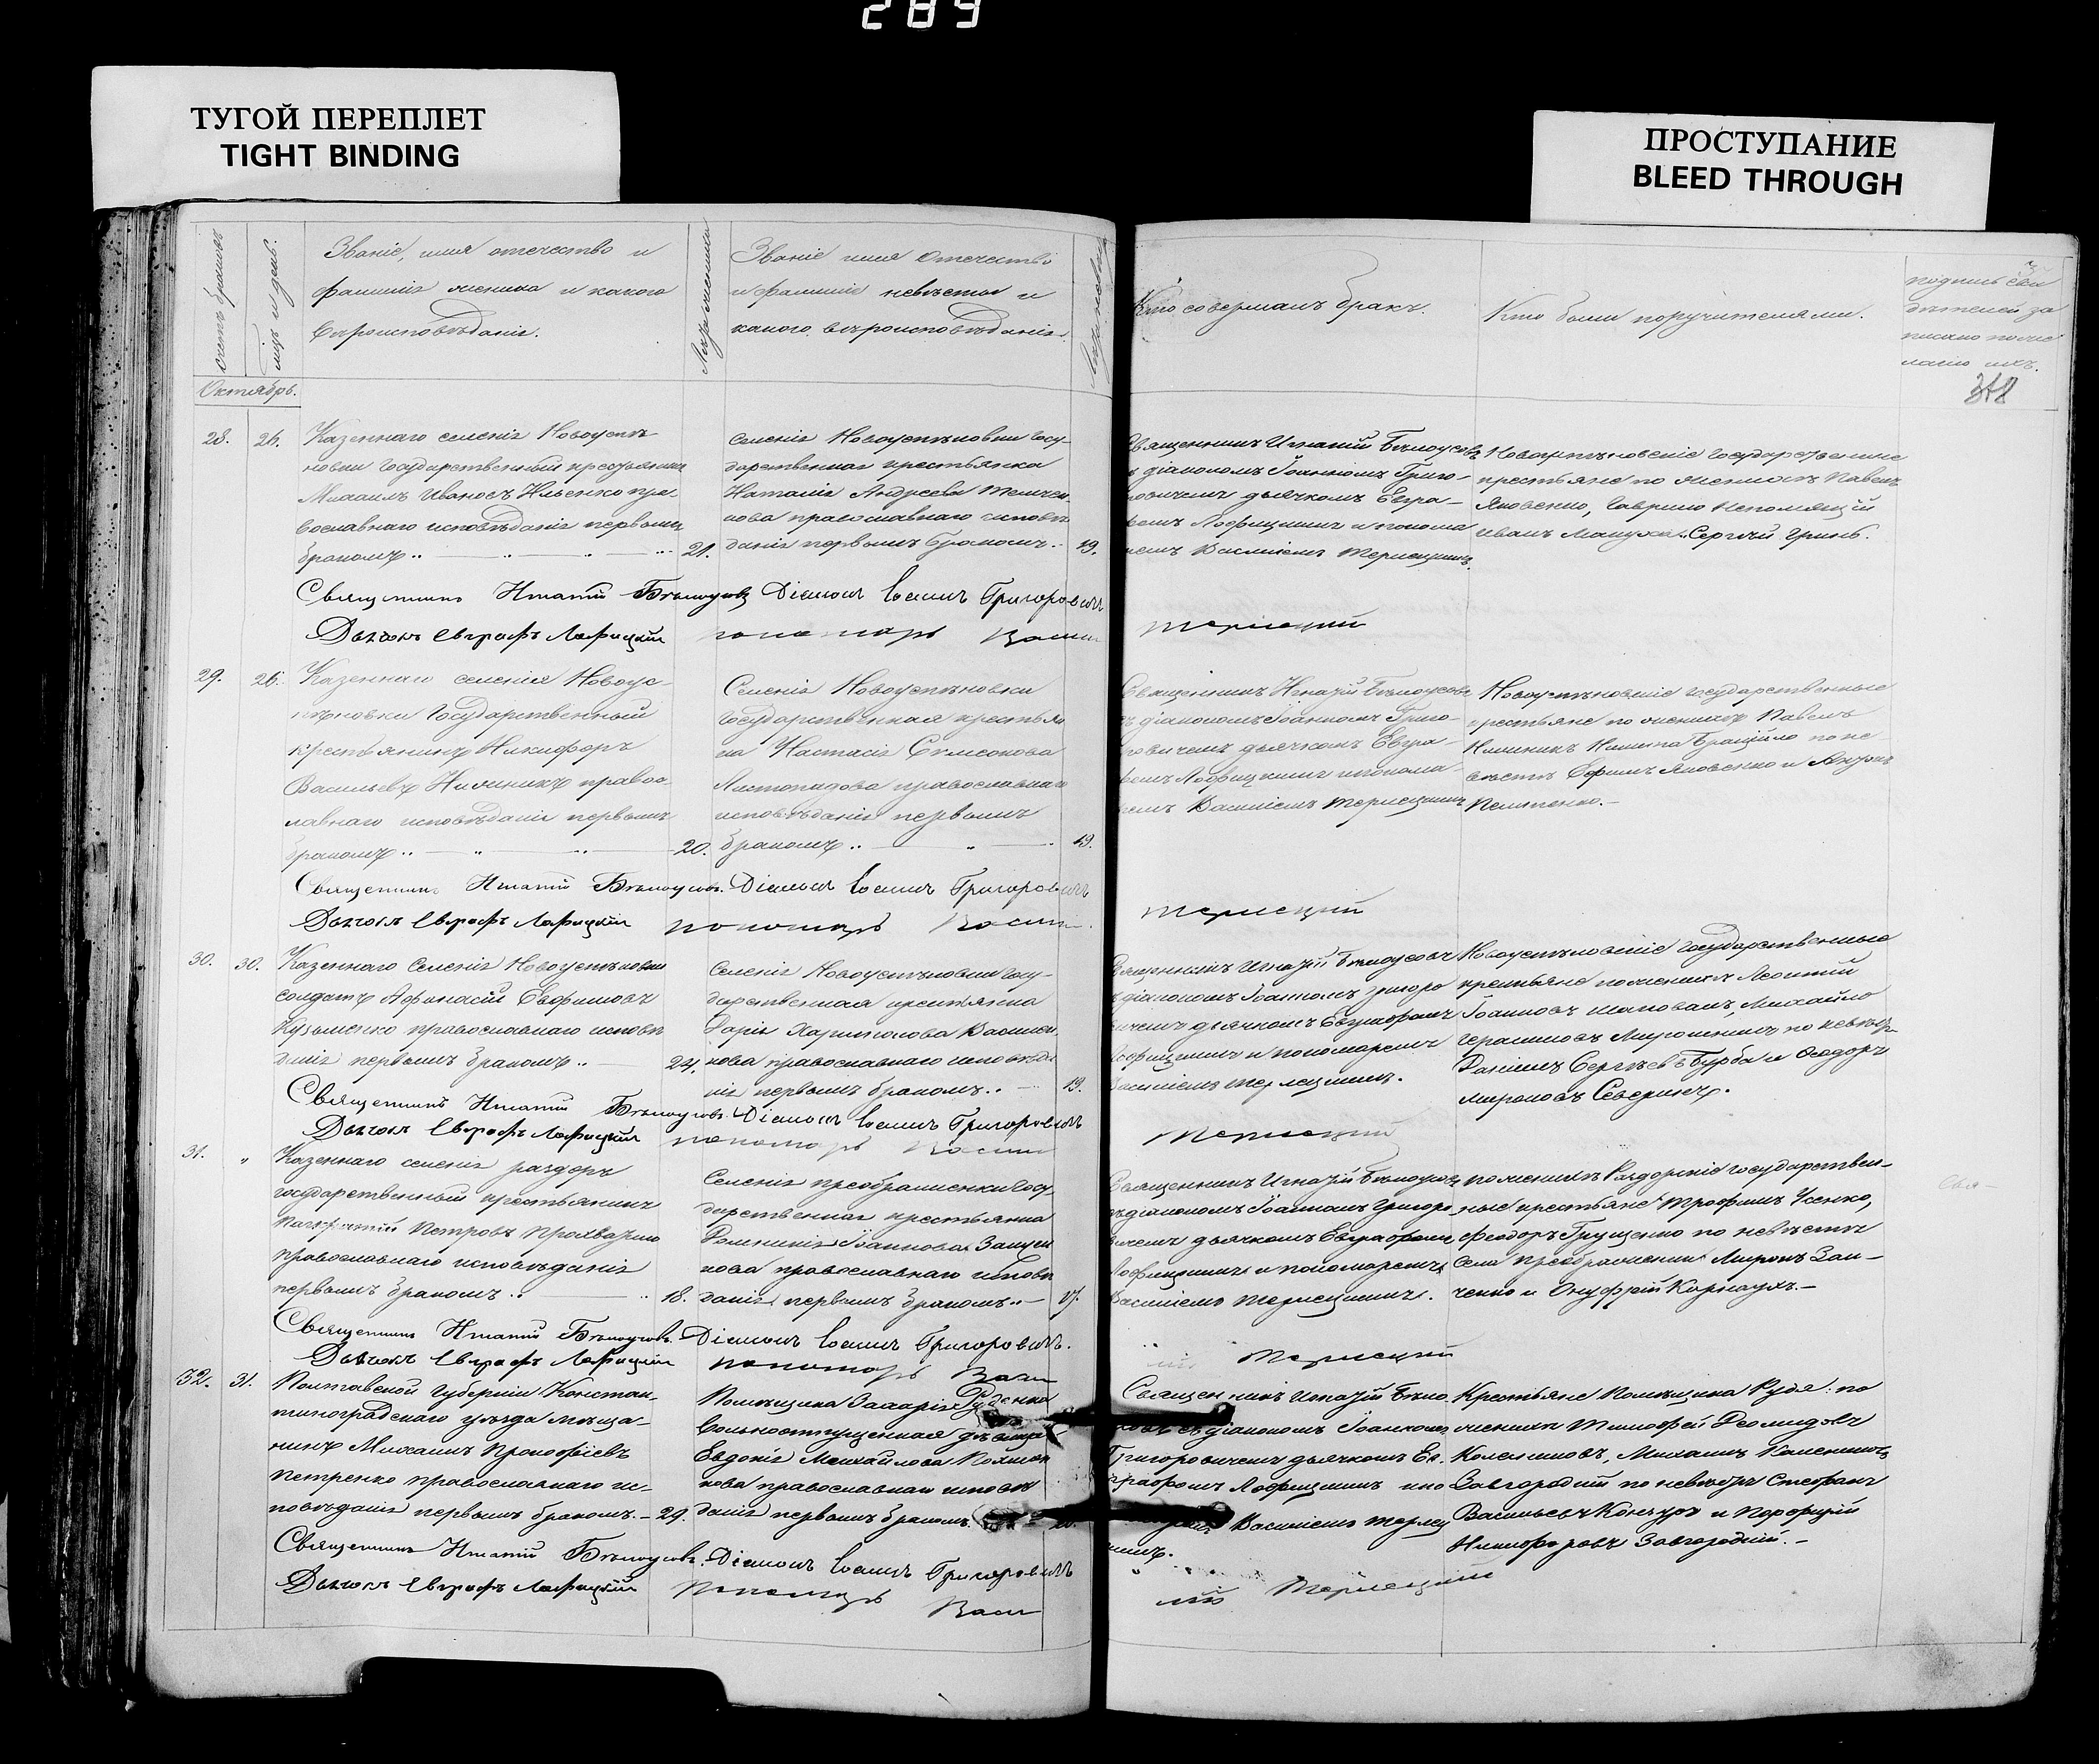 289
ТУГОЙ ПЕРЕПЛЕТ
TIGHT BINDING
ПРОСТУПАНИЕ
BLEED THROUGH
счетъ браковъ
мцъ и день.
Званіе, имя отечество и
фамилія жениха и какого
вѣроисповѣданія.
Лѣта жениха
Званіе имя Отечество
и фамиліе невѣсты и
какого вѣроисповѣданія.
Лѣта невѣсты
Кто совершалъ бракъ.
Кто были поручителями.
подпись сви
дѣтелей за
писано по же
ланію ихъ.
318
Октябрь.
28.
26.
Казеннаго селенія Новоуспѣ
новки Государственный крестьянинъ
Михаилъ Ивановъ Ильенко пра-
вославнаго исповѣданія первымъ
бракомъ
21.
селенія Новоуспѣновки Госу-
дарственная крестьянка
Наталія Андреева
нова православнаго исповѣ
данія первымъ бракомъ
19.
Священникъ Игнатій Бѣлоусовъ
діакономъ Іоанномъ Григо-
ровичемъ дьячкомъ Евгра-
фомъ Лофицкимъ и понома
ремъ Василіемъ Терлецкимъ.
Государственные
крестьяне по женихѣ Павелъ
Яковенко, Гаврило Непомящій
Иванъ Сергѣй Гринь.
Священникъ Игнатій Бѣлоусовъ Діаконъ Іоаннъ Григоровичъ
Дьячокъ Евграфъ Лофицкій пономарь Васи
Терлецкій
29.
26.
Казеннаго селенія Новоус-
пѣновки Государственный
крестьянинъ Никифоръ
Васильевъ правос-
лавнаго исповѣданія первымъ
бракомъ
20.
Селенія Новоуспѣновки
Государственная крестьян
ка Настасія Сѵмеонова
Листопадова православнаго
исповѣданія первымъ
бракомъ
19.
Священникъ Игнатій Бѣлоусовъ
съ діакономъ Іоанномъ Григо-
ровичемъ дьячкомъ Евгра-
фомъ Лофицкимъ и понома-
ремъ Василіемъ Терлецкимъ
Новоуспѣновскіе государственные
крестьяне по женихѣ Павелъ
по не
вѣстѣ Ефимъ Яковенко и Антонъ
Священникъ Игнатій Бѣлоусовъ. Діаконъ Іоаннъ Григоровичъ
Дьячокъ Евграфъ Лофицкій пономарь Васи
Терлецкій
30.
30.
Казеннаго Селенія Новоуспѣновки
солдатъ Афанасій Евфимовъ
Кузьменко православнаго исповѣ
данія первымъ бракомъ
24.
Селенія Новоуспѣновки Госу-
дарственная крестьянка
Дарія Харитонова
нова православнаго исповѣда
нія первымъ бракомъ
19.
Священникъ Игнатій Бѣлоусовъ
съ діакономъ Іоанномъ Григоро
вичемъ дьячкомъ Евграфомъ
Лофицкимъ и пономаремъ
Василіемъ Терлецкимъ.
Новоуспѣновскіе Государственные
крестьяне по женихѣ Леонтій
Іоанновъ Шаповалъ, Михайло
Герасимовъ Мирошникъ по невѣстѣ
Даніилъ Сергѣевъ Бурба и Ѳеодоръ
Мироновъ Северинъ.
Священникъ Игнатій Бѣлоусовъ. Діаконъ Іоаннъ Григоровичъ
Дьячокъ Евграфъ Лофицкій пономарь Васи
Терлецкій
31.
"
Казеннаго селенія раздоръ
государственный крестьянинъ
Петровъ
православнаго исповѣданія
первымъ бракомъ
18.
Селенія преображенки Госу-
дарственная крестьянка
Іоаннова
кова православнаго исповѣ
данія первымъ бракомъ
17.
Священникъ Игнатій Бѣлоусовъ
съ діакономъ Іоанномъ Григоро
вичемъ дьячкомъ Евграфомъ
Лофицкимъ и пономаремъ
Василіемъ Терлецкимъ.
по женихѣ Раздорскіе государствен-
ные крестьяне Трофимъ Усенко,
Феодоръ Грущенко по невѣстѣ
села преображенки Миронъ Заи-
ченко и Онуфрій Карнаухъ.
Священникъ Игнатій Бѣлоусовъ. Діаконъ Іоаннъ Григоровичъ.
Дьячокъ Евграфъ Лофицкій пономарь Васи
лій Терлецкій
32.
31.
Полтавской Губерніи Констан-
тиноградскаго уѣзда мѣща-
нинъ Михаилъ Прокофіевъ
Петренко православнаго ис-
повѣданія первымъ бракомъ.
29.
Помѣщика Захарія Руденка
вольноотпущенная дѣвица
Евдокія Михайлова
кова православнаго исповѣ
данія первымъ бракомъ.
Священникъ Игнатій Бѣло
усовъ съ діакономъ Іоанномъ
Григоровичемъ дьячкомъ Ев-
графомъ Лофицкимъ и по
Василіемъ Терлец
кимъ.
Крестьяне Помѣщика Рудя: по
женихѣ Тимофей Деомидовъ
Михаилъ
Завгородній по невѣстѣ Стефанъ
Васильевъ и Порфирій
Никифоровъ Завгородній.
Священникъ Игнатій Бѣлоусовъ. Діаконъ Іоаннъ Григоровичъ
Дьячокъ Евграфъ Лофицкій Пономарь Васи
лій Терлецкій